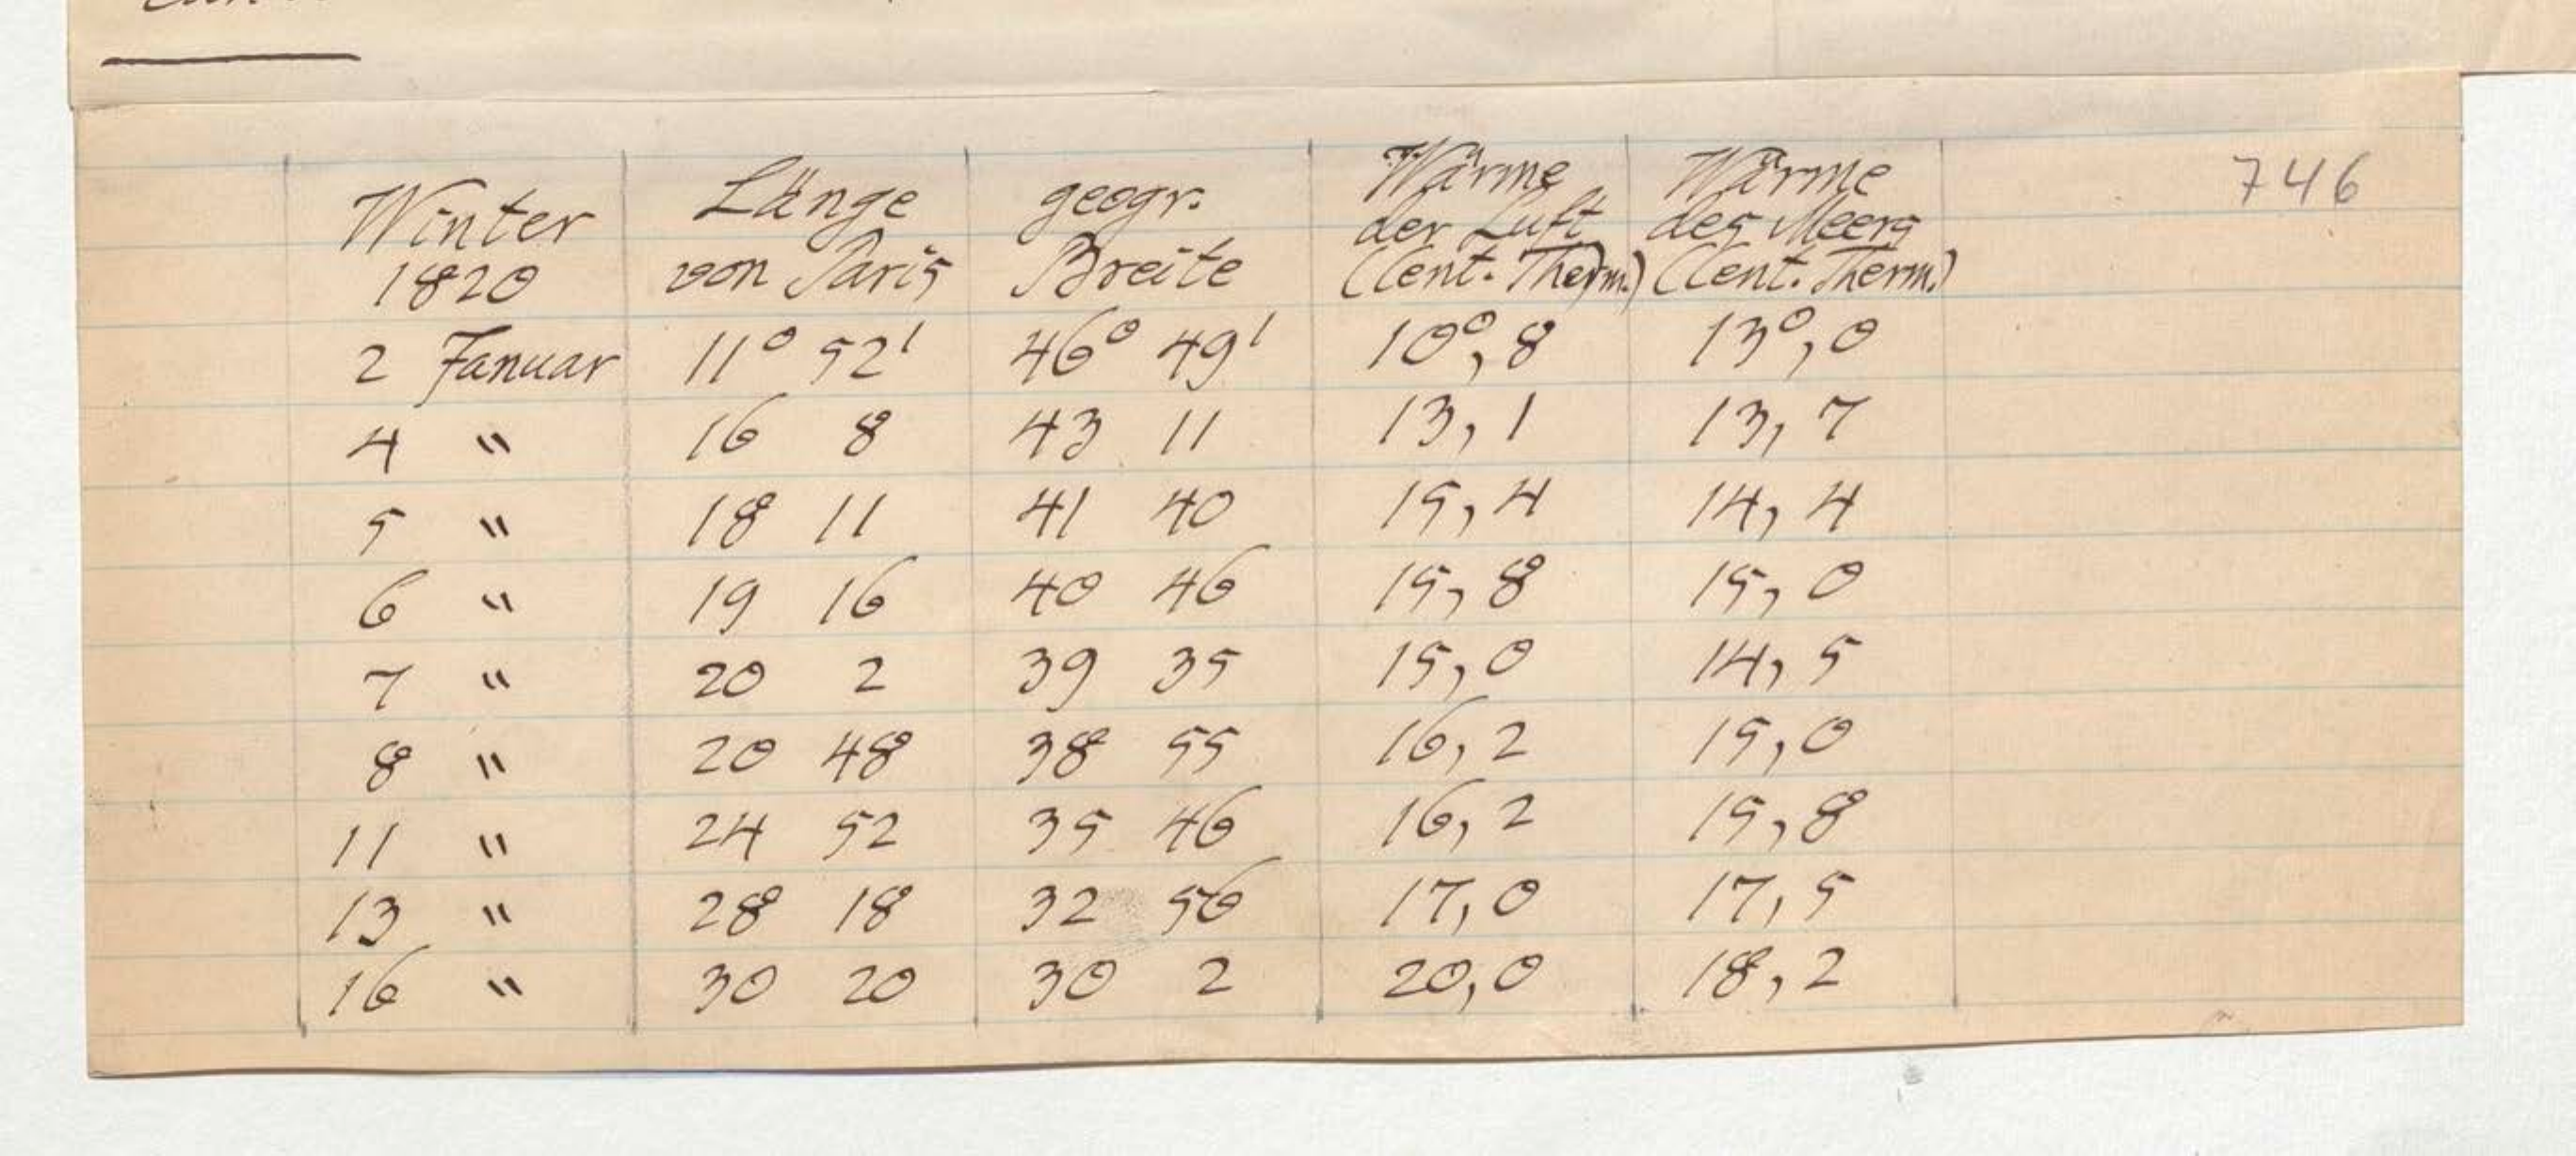 746
Winter 1820 | Länge von Paris | geogr. Breite | Wärme der Luft (Cent. Therm.) | Wärme des Meers (Cent. Therm.)
2 Januar | 11° 52' | 46° 49' | 10°,8 | 13°,0
4 " | 16 8 | 43 11 | 13,1 | 13,7
5 " | 18 11 | 41 40 | 15,4 | 14,4
6 " | 19 16 | 40 46 | 15,8 | 15,0
7 " | 20 2 | 39 35 | 15,0 | 14,5
8 " | 20 48 | 38 55 | 16,2 | 15,0
11 " | 24 52 | 35 46 | 16,2 | 15,8
13 " | 28 18 | 32 56 | 17,0 | 17,5
16 " | 30 20 | 30 2 | 20,0 | 18,2